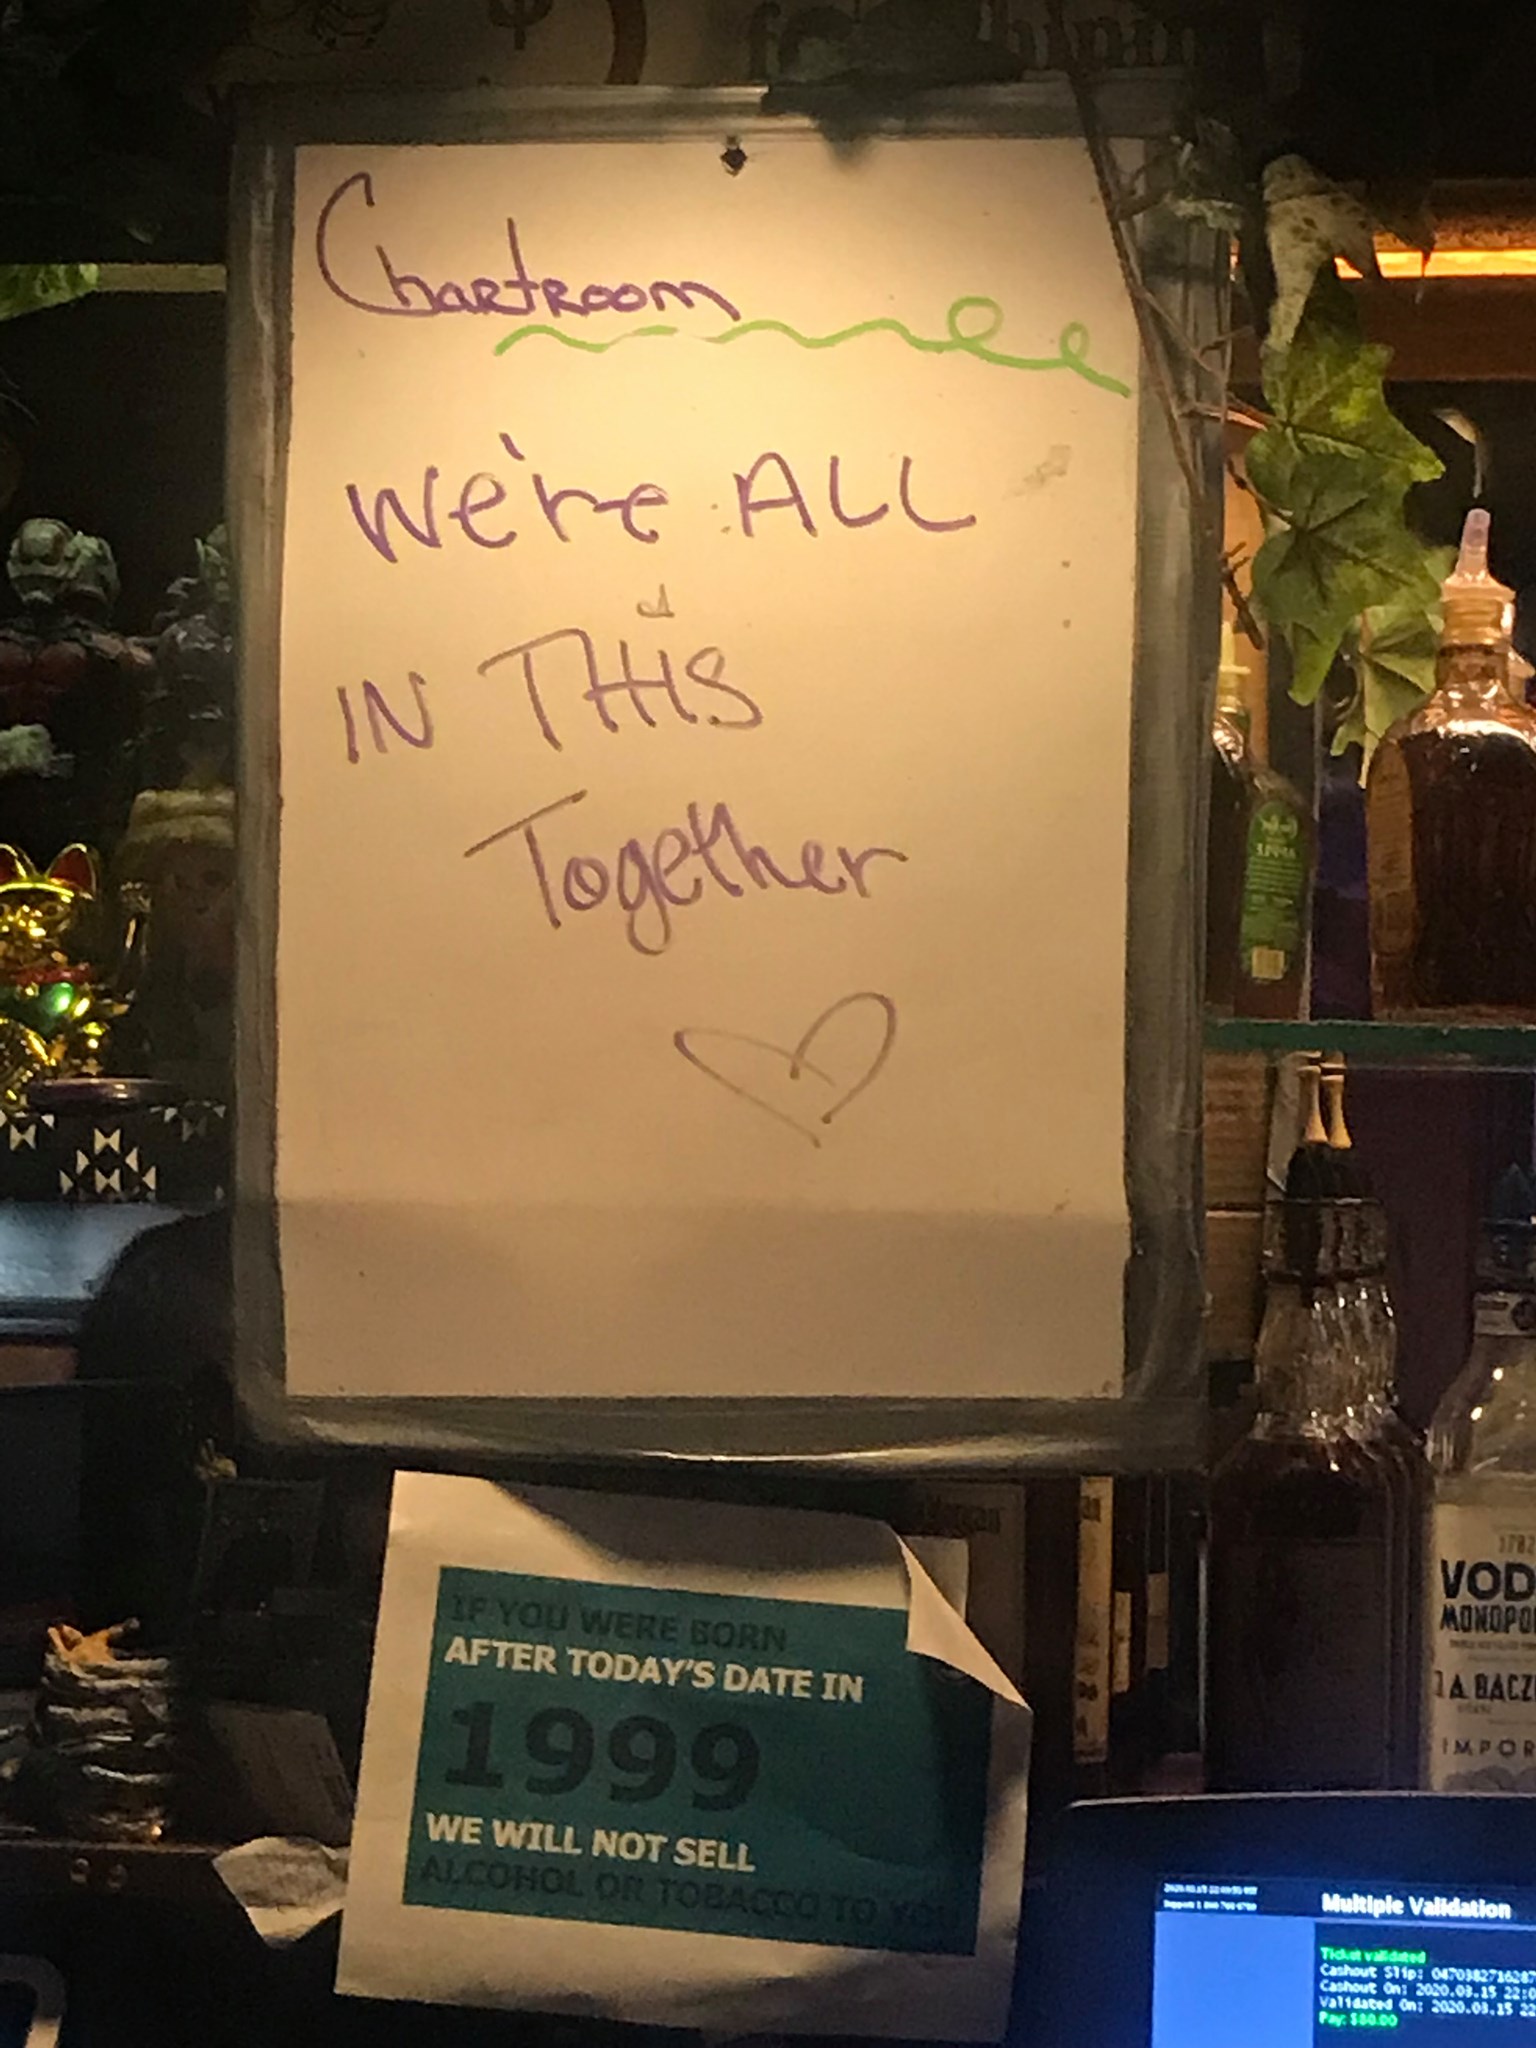 Chartroom
We're ALL
IN THIS
Together
IF YOU WERE BORN
AFTER TODAY'S DATE IN
1999
WE WILL NOT SELL
ALCOHOL OR TOBACCO TO YOU
VOD
MONOPO
IMPOR
Multiple Validation
Ticket validated
Cashout Slip: 0470382716287
Cashout On: 2020.03.15 22:0
Validated On: 2020.03.15 22
Pay: $80.00